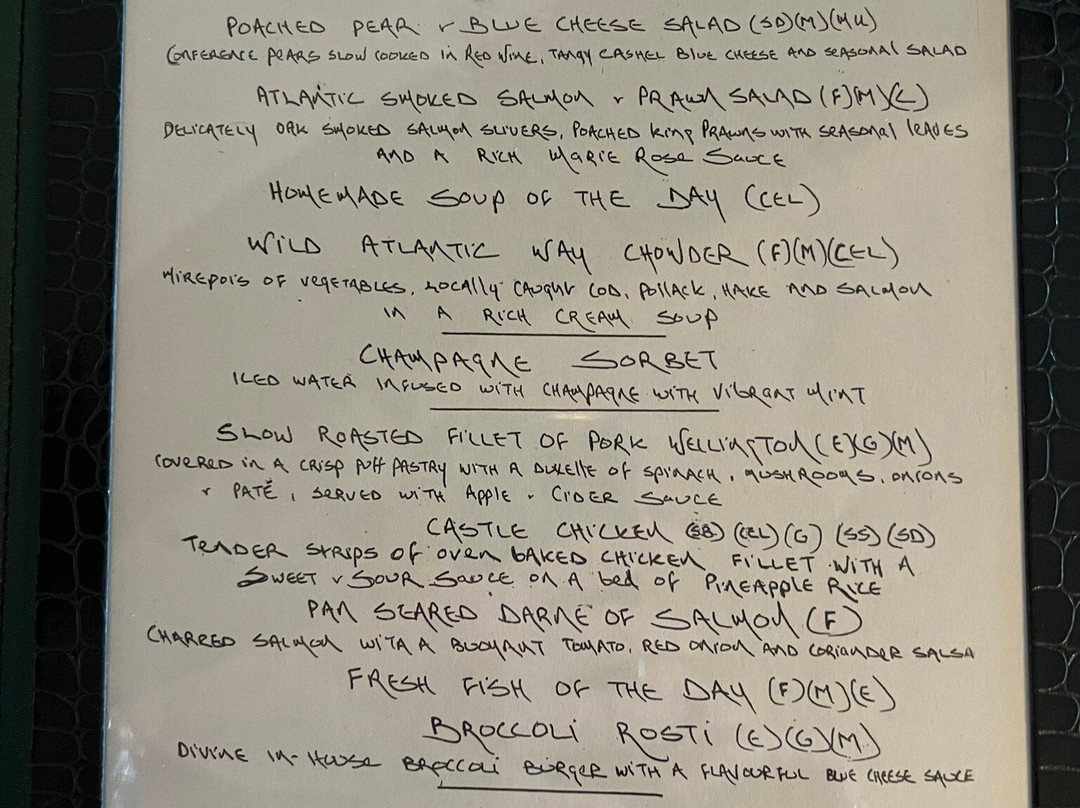 POACHED PEAR & BLUE CHEESE SALAD (SD)(M)(MU)
CONFERENCE PEARS SLOW COOKED IN RED WINE, TANGY CASHEL BLUE CHEESE AND SEASONAL SALAD
ATLANTIC SMOKED SALMON & PRAWN SALAD (F)(M)(C)
DELICATELY OAK SMOKED SALMON SLIVERS, POACHED KING PRAWNS WITH SEASONAL LEAVES
AND A RICH MARIE ROSE SAUCE
HOMEMADE SOUP OF THE DAY (CEL)
WILD ATLANTIC WAY CHOWDER (F)(M)(CEL)
MIREPOIS OF VEGETABLES, LOCALLY CAUGHT COD, POLLACK, HAKE AND SALMON
IN A RICH CREAM SOUP
CHAMPAGNE SORBET
ICED WATER INFUSED WITH CHAMPAGNE WITH VIBRANT MINT
SLOW ROASTED FILLET OF PORK WELLINGTON (E)(G)(M)
COVERED IN A CRISP PUFF PASTRY WITH A DUXELLE OF SPINACH, MUSHROOMS, ONIONS
& PATÉ, SERVED WITH APPLE & CIDER SAUCE
CASTLE CHICKEN (SB) (CEL) (G) (SS) (SD)
TENDER STRIPS OF OVEN BAKED CHICKEN FILLET WITH A
SWEET & SOUR SAUCE ON A BED OF PINEAPPLE RICE
PAN SEARED DARNE OF SALMON (F)
CHARRED SALMON WITH A BUOYANT TOMATO, RED ONION AND CORIANDER SALSA
FRESH FISH OF THE DAY (F)(M)(E)
BROCCOLI ROSTI (E)(G)(M)
DIVINE IN-HOUSE BROCCOLI BURGER WITH A FLAVOURFUL BLUE CHEESE SAUCE